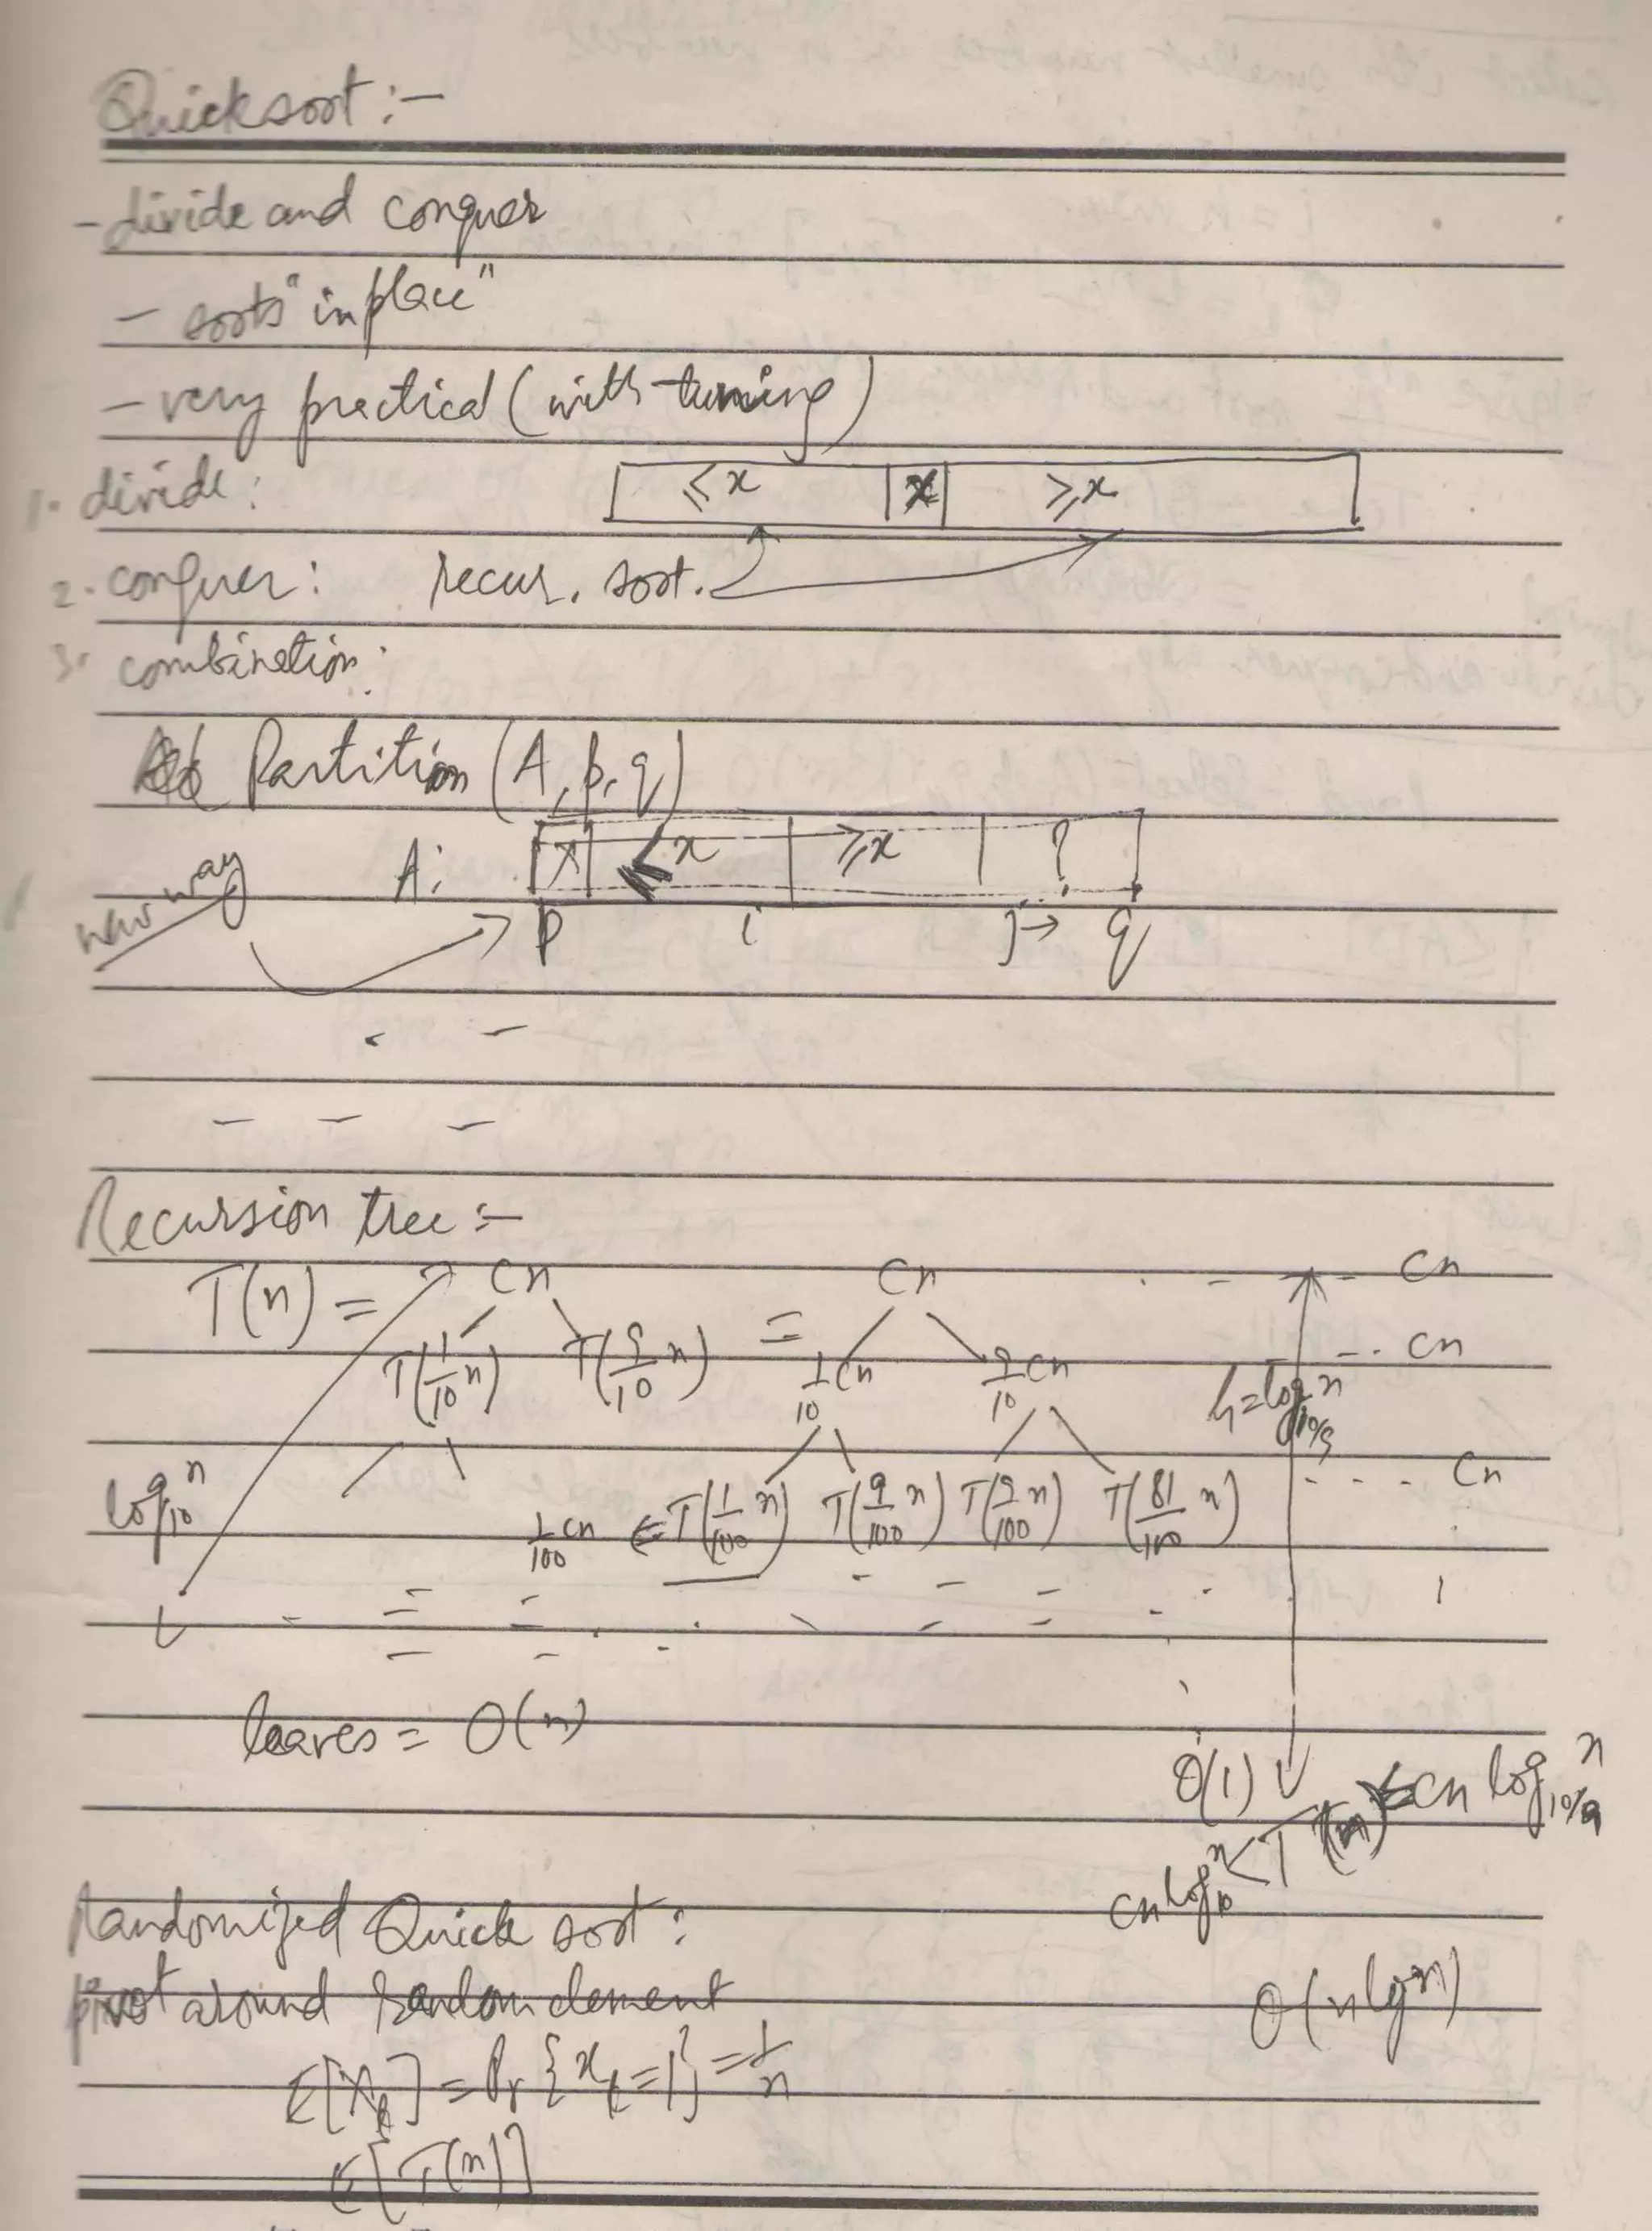 Quicksort :-
- divide and conquer
- sorts "in place"
- very practical (with tuning)
1. divide: ≤x x ≥x
2. conquer: recur. sort.
3. combination:
Partition (A, p, q)
new way A: x ≤x ≥x ?
p i j→ q
Recursion tree :-
T(n) = cn = cn - - cn
T(1/10 n) T(9/10 n) 1/10 cn 9/10 cn -.. cn
h = log_{10/9} n
log_{10} n 1/100 cn ← T(1/100 n) T(9/100 n) T(9/100 n) T(81/100 n) .... cn
leaves = O(n)
O(1)
cn log_{10} n < T(n) ≤ cn log_{10/9} n
Randomized Quick sort :
pivot around random element
O(n lg n)
E[X_k] = Pr {x_k = 1} = 1/n
E[T(n)]